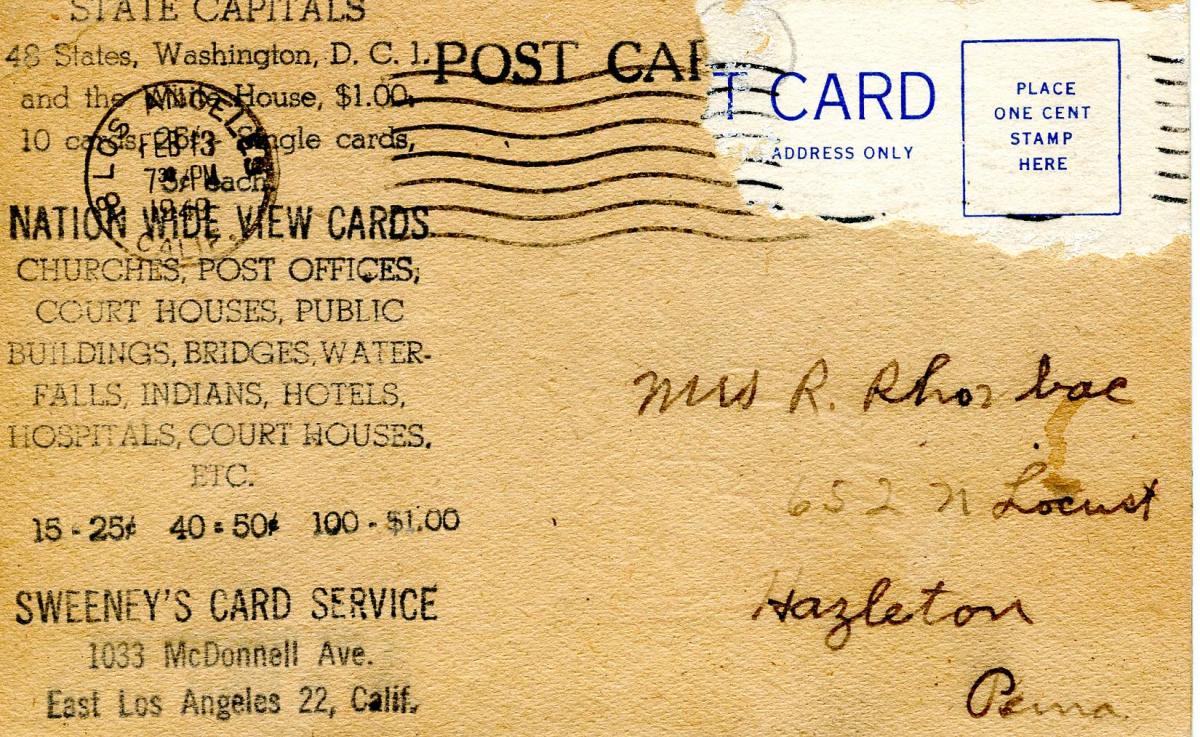 STATE CAPITALS
48 States, Washington, D. C. 1.
and the White House, $1.00.
10 cards, 25¢ - Single cards,
3¢ each
NATION WIDE VIEW CARDS
CHURCHES, POST OFFICES,
COURT HOUSES, PUBLIC
BUILDINGS, BRIDGES, WATER-
FALLS, INDIANS, HOTELS,
HOSPITALS, COURT HOUSES,
ETC.
15 - 25¢ 40 - 50¢ 100 - $1.00
SWEENEY'S CARD SERVICE
1033 McDonnell Ave.
East Los Angeles 22, Calif.
LOS ANGELES
FEB 13
7 30 PM
CALIF.
POST CAR
T CARD
ADDRESS ONLY
PLACE
ONE CENT
STAMP
HERE
Mrs R. Rhor bac
652 N Locust
Hazleton
Penna.